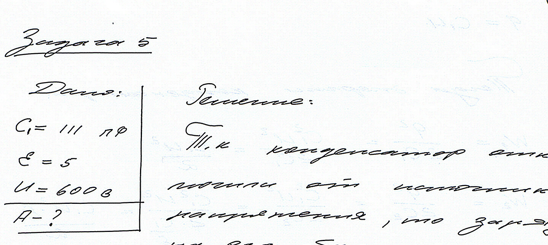 Задача 5
Дано:
C₁ = 111 пФ
ε = 5
U = 600 В
A - ?
Решение:
Т.к конденсатор отк
лючили от источник
напряжения, то заряд